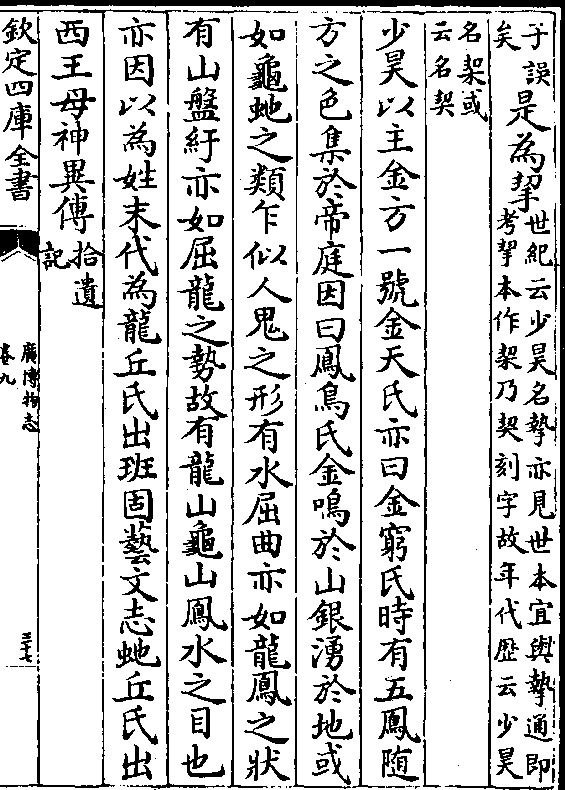 于誤
矣
是為挈
世紀云少昊名摯亦見世本宜與摯通即
考挈本作栔乃契刻字故年代歴云少昊
名栔或
云名契
少昊以主金方一號金天氏亦曰金窮氏時有五鳳随
方之色集於帝庭因曰鳳鳥氏金鳴於山銀湧於地或
如龜虵之類乍似人鬼之形有水屈曲亦如龍鳳之狀
有山盤紆亦如屈龍之勢故有龍山龜山鳳水之目也
亦因以為姓末代為龍丘氏出班固藝文志虵丘氏出
西王母神異傳
拾遺
記
欽定四庫全書
廣博物志
卷九
三十七